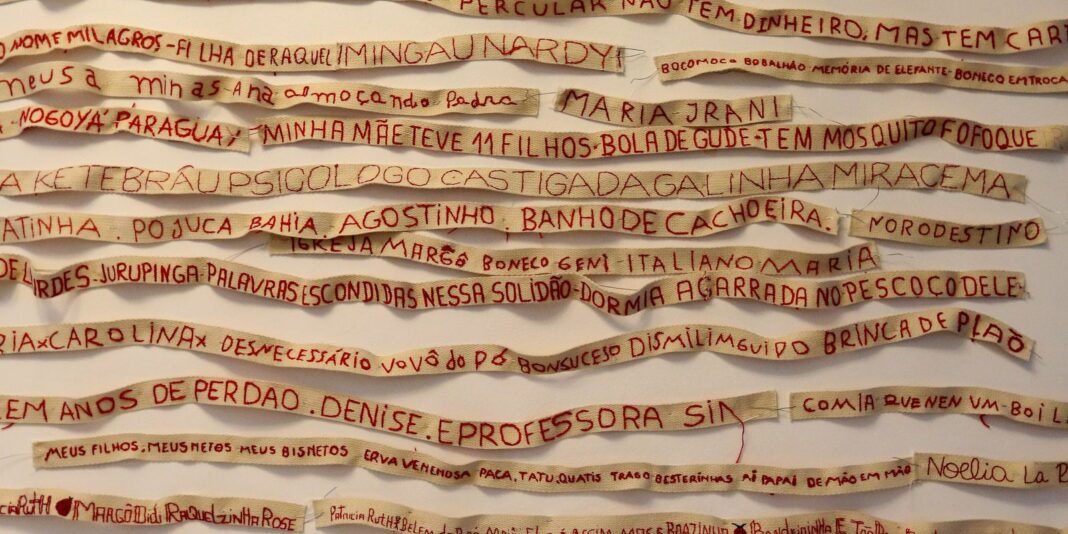 PERCULAR NÃO TEM-DINHEIRO, MAS TEM CART
O NOME MILAGROS-FILHA DE RAQUEL MINGAU NARDY
BOCOMOCO BOBALHÃO-MEMÓRIA DE ELEFANTE-BONECO EM TROCA
meus a minas Ana almoçando Pedra
MARIA JRANI
NOGOYÁ PARAGUAY
MINHA MÃE TEVE 11 FILHOS-BOLA DE GUDE-TEM MOSQUITO FOFOQUE
A KETEBRÁU PSICOLOGO CASTIGADA GALINHA MIRACEMA
ATINHA. POJUCA BAHIA. AGOSTINHO. BANHO DE CACHOEIRA.
NORODESTINO
IGREJA MARGÔ BONECO GENI-ITALIANO-MARIA
DE LURDES-JURUPINGA-PALAVRAS ESCONDIDAS NESSA SOLIDÃO-DORMIA AGARRADA NO PESCOÇO DELE-
RIAxCAROLINAx DESNECESSÁRIO VOVÔ do PÓ BONSUCESO DISMILIMGUIDO BRINCA DE PIAÕ
EM ANOS DE PERDAO. DENISE. E PROFESSORA SIM
COMIA QUE NEN UM-BOI L
MEUS FILHOS, MEUS NETOS MEUS BISNETOS ERVA VENENOSA PACA, TATU, QUATIS TRAGO BESTERINHAS PAPAI DE MÃO EM MÃO
NOELIA LA P
RUTH MARGÔ Didi RAQUELZINHA ROSE
PATRICIA RUTH BELEM